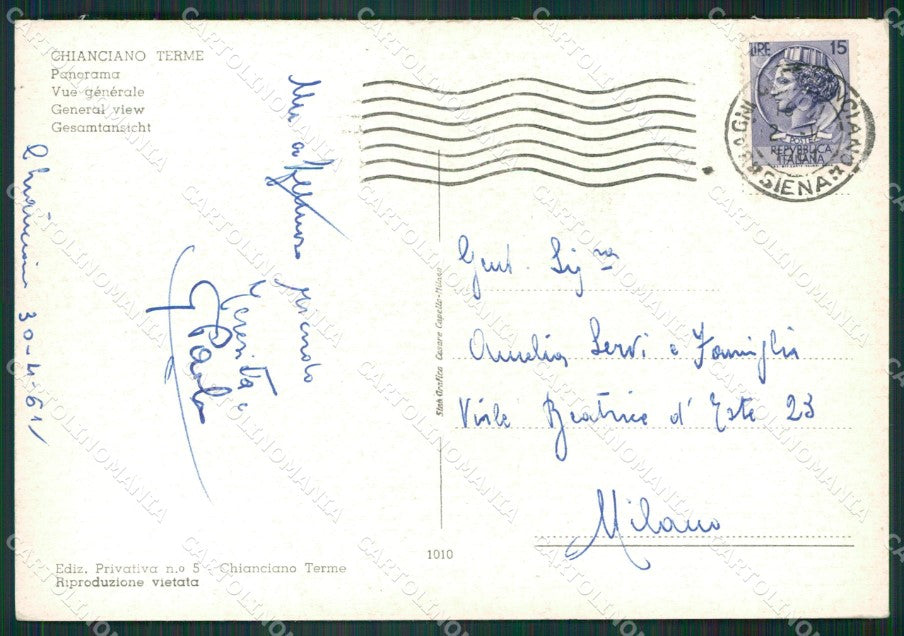 CHIANCIANO TERME
Panorama
Vue générale
General view
Gesamtansicht
LIRE 15
POSTE
REPVBBLICA
ITALIANA
BAGNI CHIANCIANO
*SIENA*
Chianciano 30-4-61
Un affettuoso ricordo
Teresita e
G Paolo
Gent. Sig.na
Aurelia Servi e Famiglia
Viale Beatrice d' Este 23
Milano
Stab. Grafico Cesare Capello-Milano
1010
Ediz. Privativa n.o 5 - Chianciano Terme
Riproduzione vietata
CARTOLINOMANIA